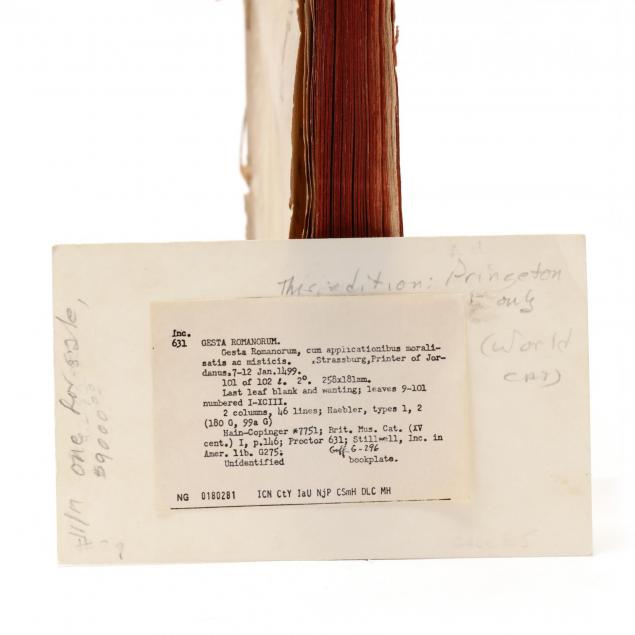 This edition: Princeton
only
(World
CAT)
Inc.
631 GESTA ROMANORUM.
Gesta Romanorum, cum applicationibus morali-
satis ac misticis. .Strassburg,Printer of Jor-
danus,7-12 Jan.1499.
101 of 102 ℓ. 2°. 258x181mm.
Last leaf blank and wanting; leaves 9-101
numbered I-XCIII.
2 columns, 46 lines; Haebler, types 1, 2
(180 G, 99a G)
Hain-Copinger *7751; Brit. Mus. Cat. (XV
cent.) I, p.146; Proctor 631; Stillwell, Inc. in
Amer. lib. G275; Goff-G-296
Unidentified bookplate.
NG 0180281 ICN CtY IaU NjP CSmH DLC MH
one for sale,